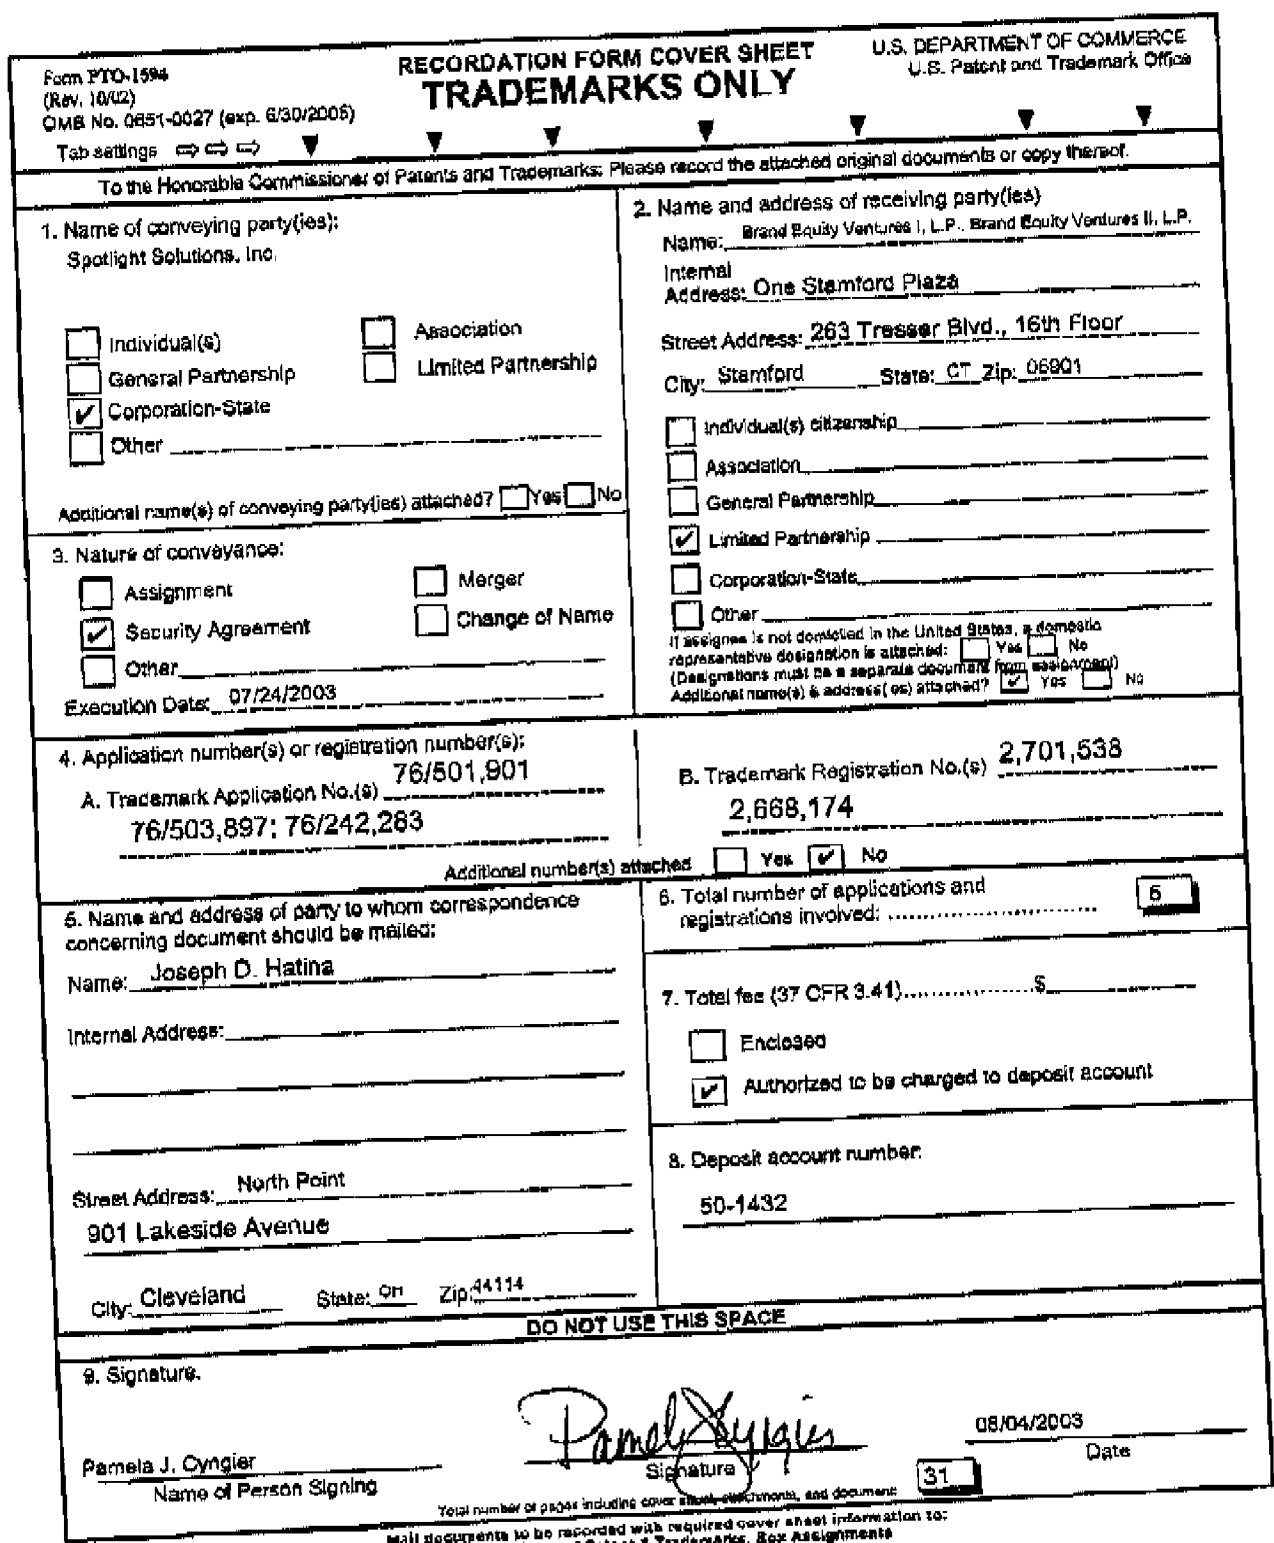 Form PTO-1594
(Rev. 10/02)
OMB No. 0651-0027 (exp. 6/30/2005)
Tab settings ⇨ ⇨ ⇨ ▼ ▼ ▼ ▼ ▼ ▼ ▼
RECORDATION FORM COVER SHEET
TRADEMARKS ONLY
U.S. DEPARTMENT OF COMMERCE
U.S. Patent and Trademark Office
To the Honorable Commissioner of Patents and Trademarks: Please record the attached original documents or copy thereof.
1. Name of conveying party(ies):
Spotlight Solutions, Inc.
Individual(s)
Association
General Partnership
Limited Partnership
✔ Corporation-State
Other
Additional name(s) of conveying party(ies) attached? Yes No
2. Name and address of receiving party(ies)
Name: Brand Equity Ventures I, L.P., Brand Equity Ventures II, L.P.
Internal
Address: One Stamford Plaza
Street Address: 263 Tresser Blvd., 16th Floor
City: Stamford State: CT Zip: 06901
Individual(s) citizenship
Association
General Partnership
✔ Limited Partnership
Corporation-State
Other
If assignee is not domiciled in the United States, a domestic
representative designation is attached: Yes No
(Designations must be a separate document from assignment)
Additional name(s) & address( es) attached? ✔ Yes No
3. Nature of conveyance:
Assignment
Merger
✔ Security Agreement
Change of Name
Other
Execution Date: 07/24/2003
4. Application number(s) or registration number(s):
A. Trademark Application No.(s) 76/501,901
76/503,897; 76/242,283
B. Trademark Registration No.(s) 2,701,538
2,668,174
Additional number(s) attached Yes ✔ No
5. Name and address of party to whom correspondence
concerning document should be mailed:
Name: Joseph D. Hatina
Internal Address:
Street Address: North Point
901 Lakeside Avenue
City: Cleveland State: OH Zip: 44114
6. Total number of applications and
registrations involved: 5
7. Total fee (37 CFR 3.41) $
Enclosed
✔ Authorized to be charged to deposit account
8. Deposit account number:
50-1432
DO NOT USE THIS SPACE
9. Signature.
Pamela J. Cyngier
Name of Person Signing
Pamela J Cyngier
Signature
08/04/2003
Date
Total number of pages including cover sheet, attachments, and document: 31
Mail documents to be recorded with required cover sheet information to:
Trademarks, Box Assignments